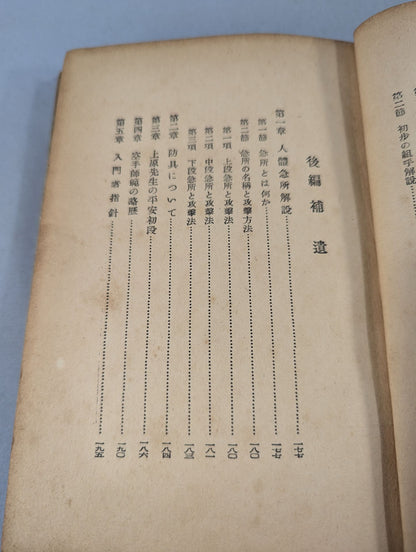 第二節 初歩の組手解説
後編補遺
第一章 人體急所解説………一七七
第一節 急所とは何か………一七七
第二節 急所の名稱と攻撃方法………一八〇
第一項 上段急所と攻撃法………一八〇
第二項 中段急所と攻撃法………一八一
第三項 下段急所と攻撃法………一八三
第二章 防具について………一八四
第三章 上原先生の平安初段………一八六
第四章 空手師範の略歴………一九〇
第五章 入門者指針………一九五